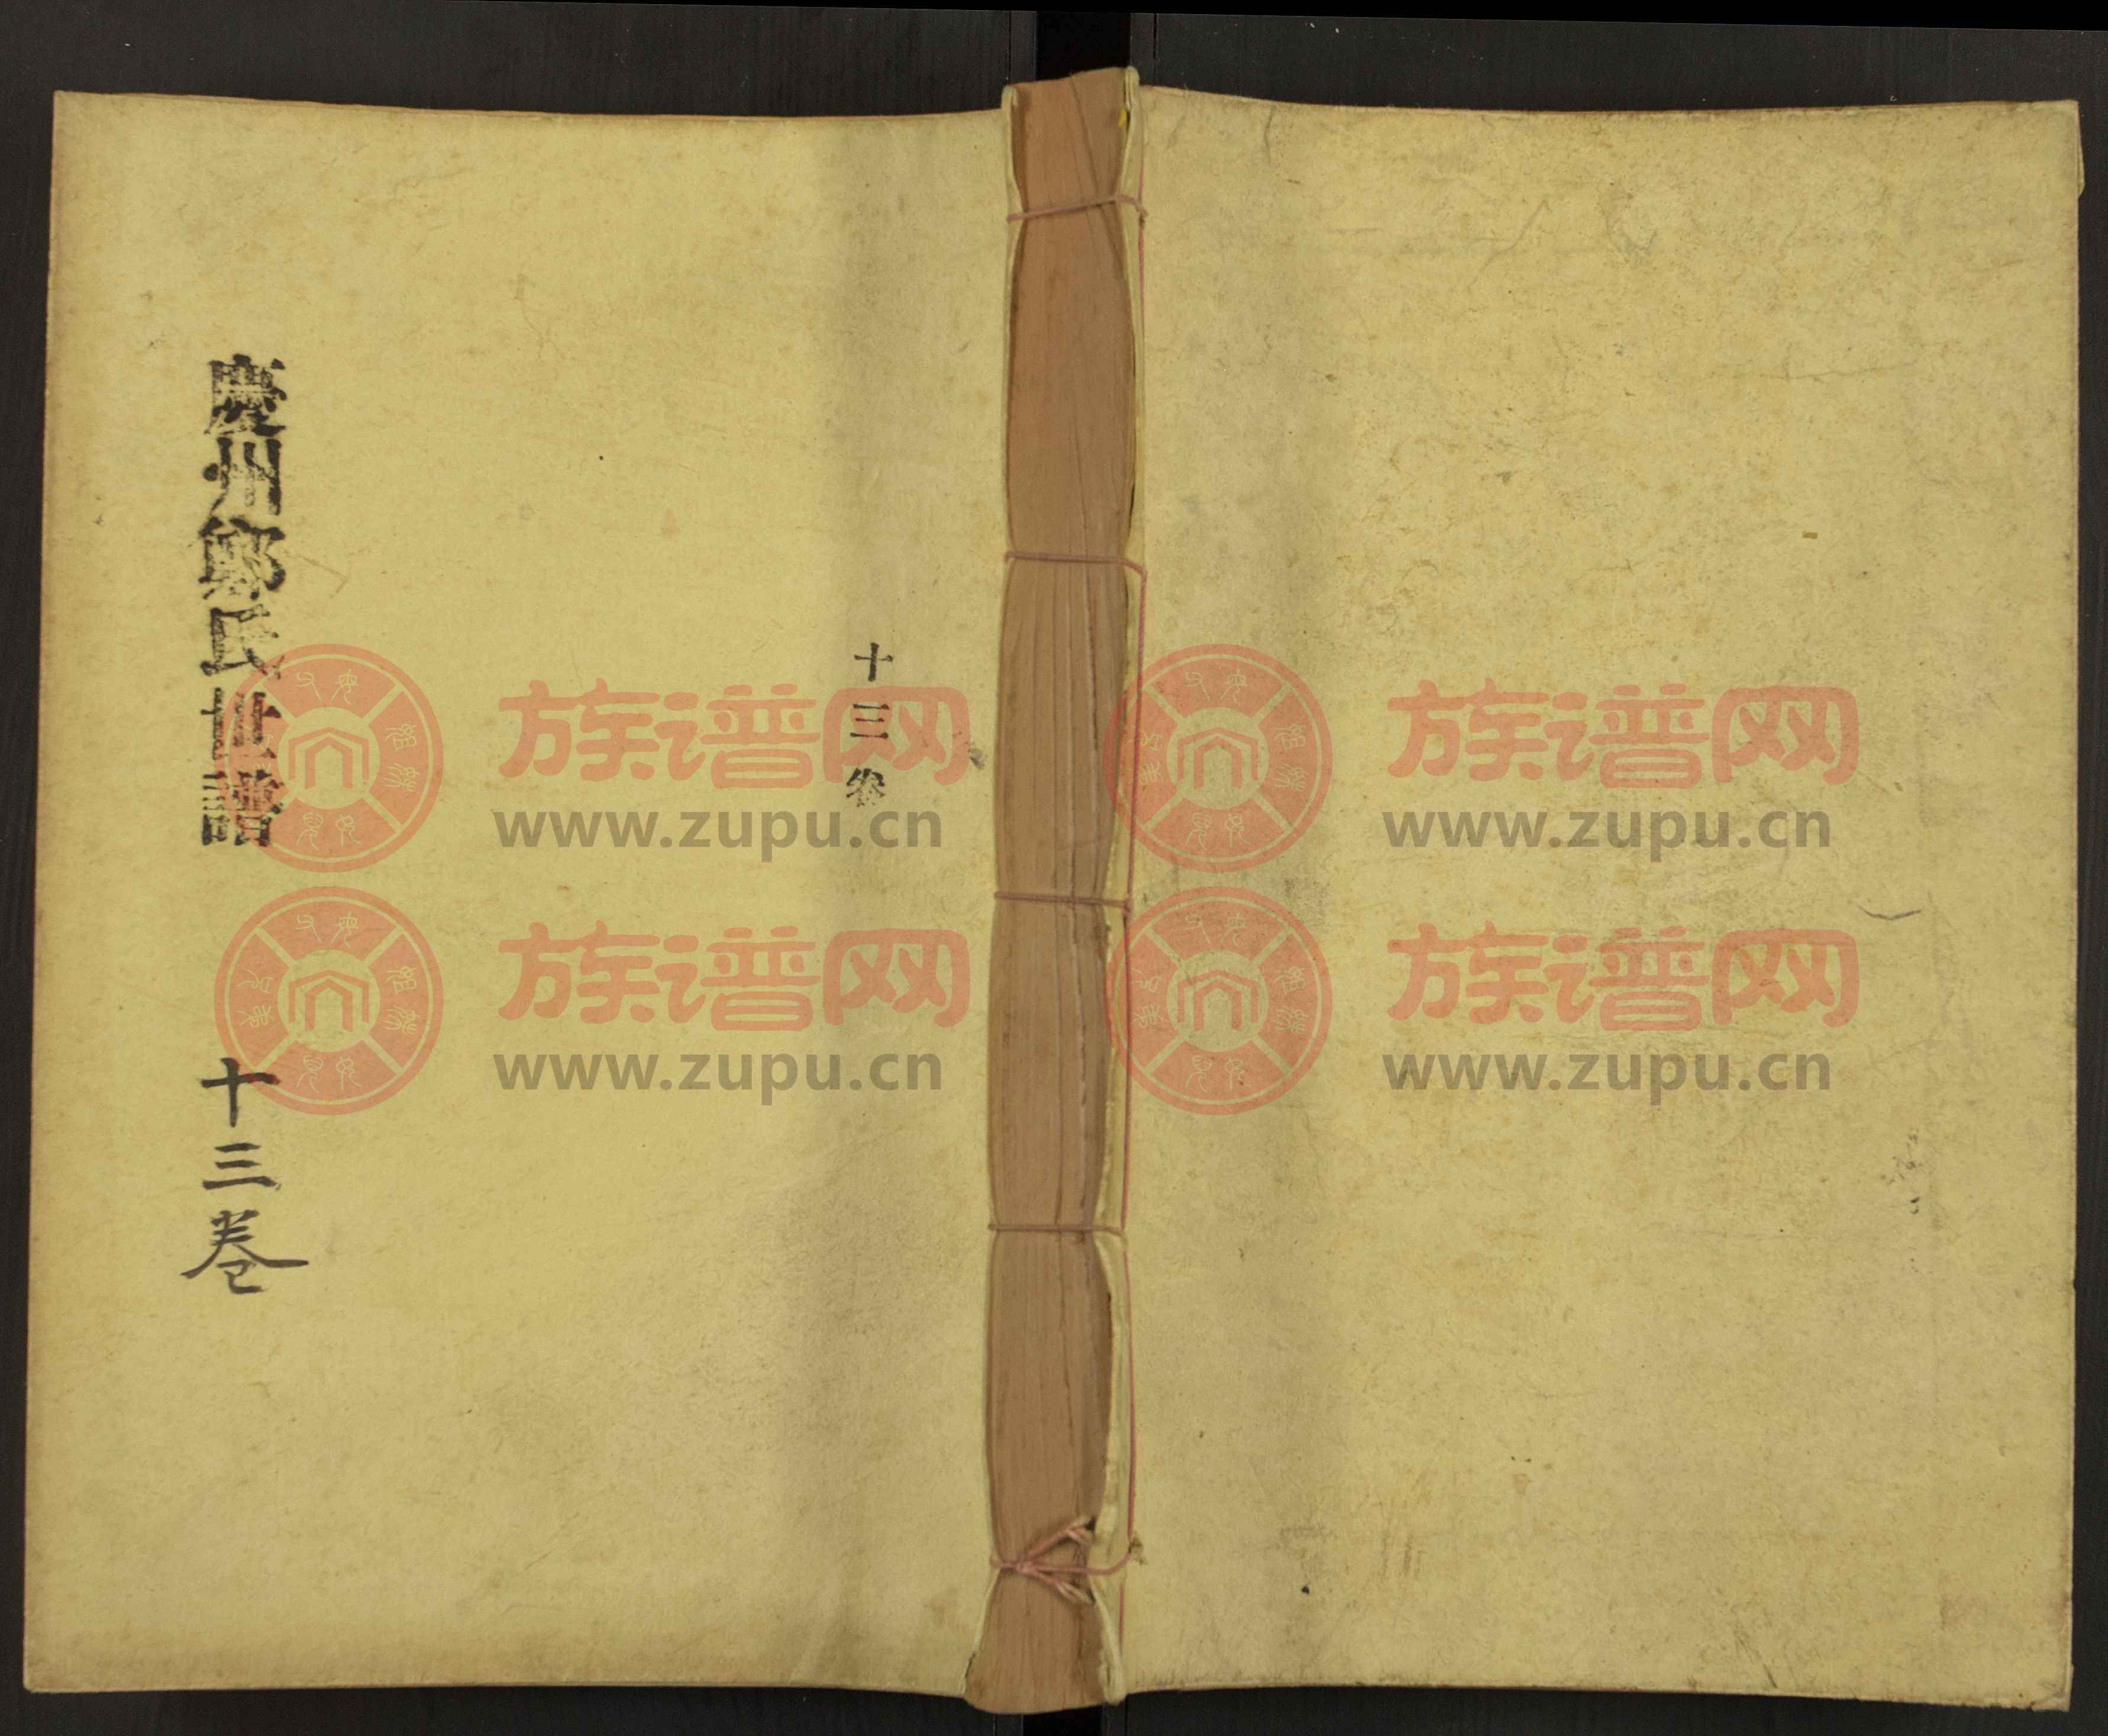 慶州鄭氏世譜
十三卷
十三卷
族谱网
www.zupu.cn
族谱网
www.zupu.cn
族谱网
www.zupu.cn
族谱网
www.zupu.cn